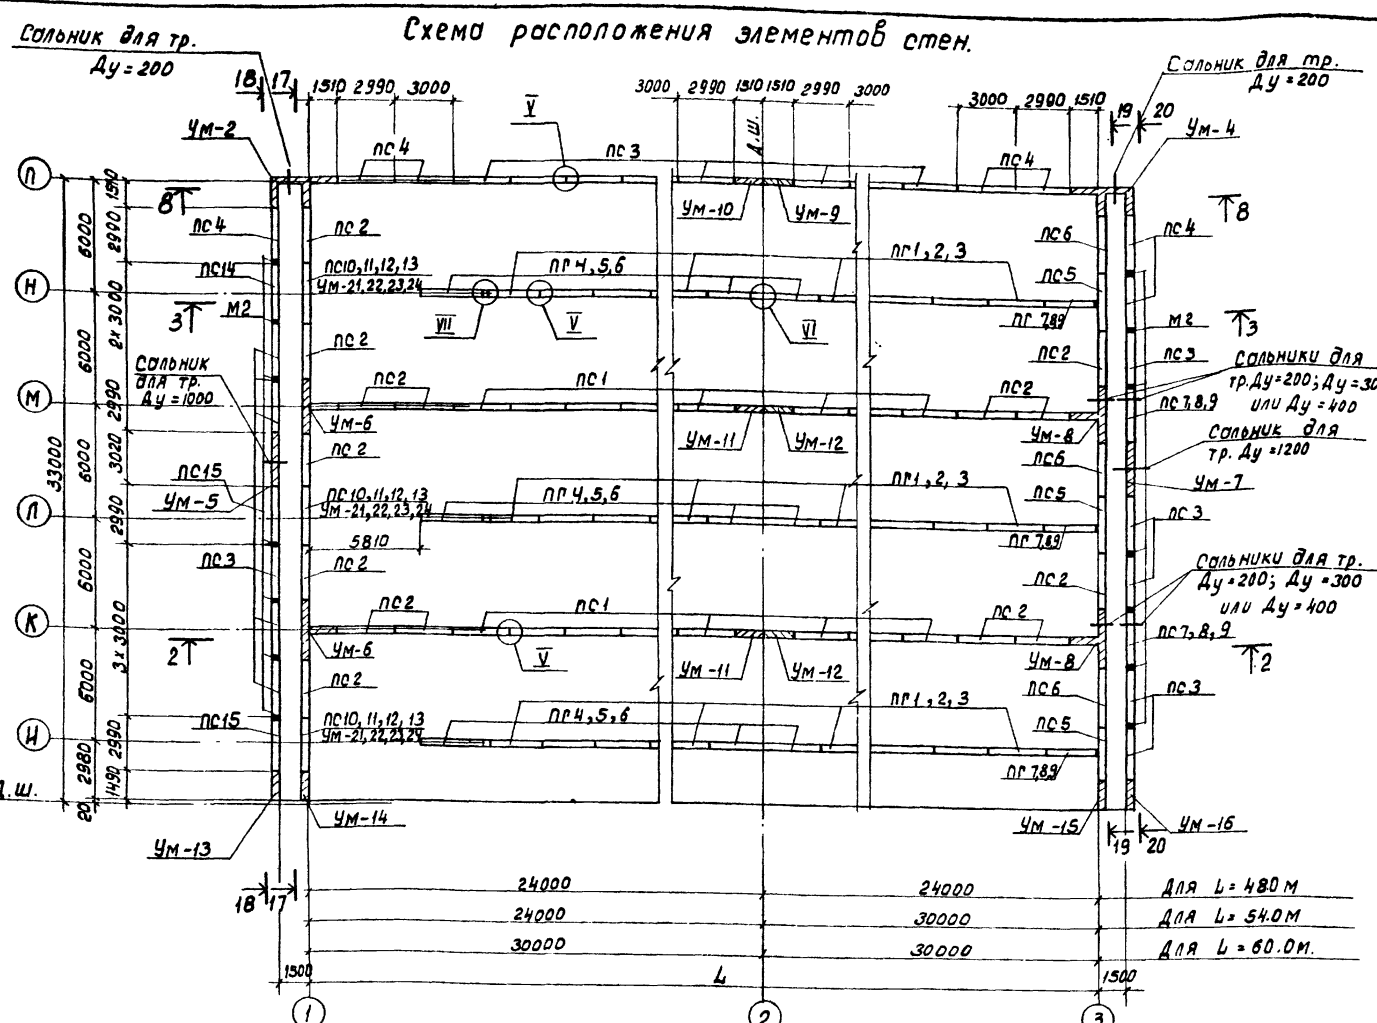 Схема расположения элементов стен.
Сальник для тр.
Ду=200
Сальник для тр.
Ду=200
18 17
1510 2990 3000
3000 2990 1510 1510 2990 3000
3000 2990 1510
19 20
Д.Ш.
Ум-2
V
Ум-4
пс4
пс3
пс4
П
8
Ум-10
Ум-9
8
пс4
пс2
пс6
пс4
пс14
пс10,11,12,13
Ум-21,22,23,24
пг4,5,6
пг1,2,3
пс5
Н
3
М2
VII
V
VI
пг 7,8,9
М2
3
пс2
пс2
пс3
Сальник
для тр.
Ду=1000
Сальники для
тр.Ду=200; Ду=30
или Ду=400
пс2
пс1
пс2
пс7,8,9
М
Ум-6
Ум-11
Ум-12
Ум-8
Сальник для
тр. Ду=1200
пс2
пс6
пс15
Ум-5
Ум-7
пс10,11,12,13
Ум-21,22,23,24
пг4,5,6
пг1,2,3
пс5
Л
пс3
5810
пг 7,8,9
пс3
пс2
пс2
Сальники для тр.
Ду=200; Ду=300
или Ду=400
пс2
пс1
пс2
К
2
Ум-6
V
Ум-11
Ум-12
Ум-8
пс7,8,9
2
пс2
пс6
пс3
пс15
пс10,11,12,13
Ум-21,22,23,24
пг4,5,6
пг1,2,3
пс5
И
пг 7,8,9
33000
6000
6000
6000
6000
6000
2980
20
1510
2990
2х3000
2990
3020
2990
3х3000
2990
1490
.Ш.
Ум-13
Ум-14
Ум-15
Ум-16
19 20
18 17
24000 24000 Для L=48.0м
24000 30000 Для L=54.0м
30000 30000 Для L=60.0м.
1500 L 1500
1 2 3